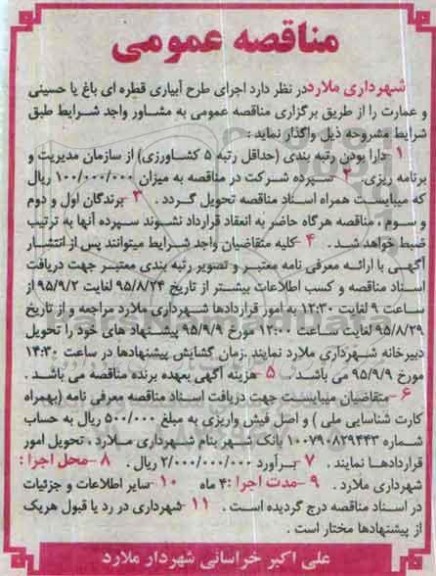 مناقصه عمومی
شهرداری ملارد در نظر دارد اجرای طرح آبیاری قطره ای باغ یا حسینی
و عمارت را از طریق برگزاری مناقصه عمومی به مشاور واجد شرایط طبق
شرایط مشروحه ذیل واگذار نماید :
۱- دارا بودن رتبه بندی (حداقل رتبه ۵ کشاورزی) از سازمان مدیریت و
برنامه ریزی. ۲- سپرده شرکت در مناقصه به میزان ۱۰۰/۰۰۰/۰۰۰ ریال
که میبایست همراه اسناد مناقصه تحویل گردد . ۳- برندگان اول و دوم
و سوم ، مناقصه هرگاه حاضر به انعقاد قرارداد نشوند سپرده آنها به ترتیب
ضبط خواهد شد . ۴- کلیه متقاضیان واجد شرایط میتوانند پس از انتشار
آگهی با ارائه معرفی نامه معتبر و تصویر رتبه بندی معتبر جهت دریافت
اسناد مناقصه و کسب اطلاعات بیشتر از تاریخ ۹۵/۸/۲۴ لغایت ۹۵/۹/۲ از
ساعت ۹ لغایت ۱۲:۳۰ به امور قراردادها شهرداری ملارد مراجعه و از تاریخ
۹۵/۸/۲۹ لغایت ساعت ۱۲:۰۰ مورخ ۹۵/۹/۹ پیشنهاد های خود را تحویل
دبیرخانه شهرداری ملارد نمایند .زمان گشایش پیشنهادها در ساعت ۱۴:۳۰
مورخ ۹۵/۹/۹ می باشد . ۵- هزینه آگهی بعهده برنده مناقصه می باشد .
۶- متقاضیان میبایست جهت دریافت اسناد مناقصه معرفی نامه (بهمراه
کارت شناسایی ملی ) و اصل فیش واریزی به مبلغ ۵۰۰/۰۰۰ ریال به حساب
شماره ۱۰۰۷۹۰۸۲۹۴۴۳ بانک شهر بنام شهرداری ملارد ، تحویل امور
قراردادها نمایند . ۷- برآورد ۲/۰۰۰/۰۰۰/۰۰۰ ریال . ۸- محل اجرا :
شهرداری ملارد . ۹- مدت اجرا :۴ ماه ۱۰- سایر اطلاعات و جزئیات
در اسناد مناقصه درج گردیده است . ۱۱- شهرداری در رد یا قبول هریک
از پیشنهادها مختار است .
علی اکبر خراسانی شهردار ملارد